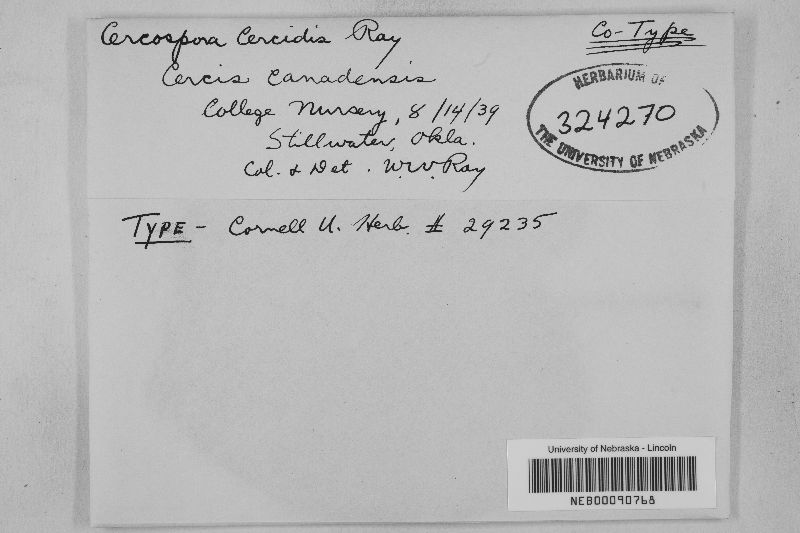 Cercospora Cercidis Ray
Co-Type
Cercis canadensis
College Nursery, 8/14/39
Stillwater, Okla.
Col. & Det. W.W. Ray
HERBARIUM OF
324270
THE UNIVERSITY OF NEBRASKA
TYPE - Cornell U. Herb. # 29235
University of Nebraska - Lincoln
NEB00090768